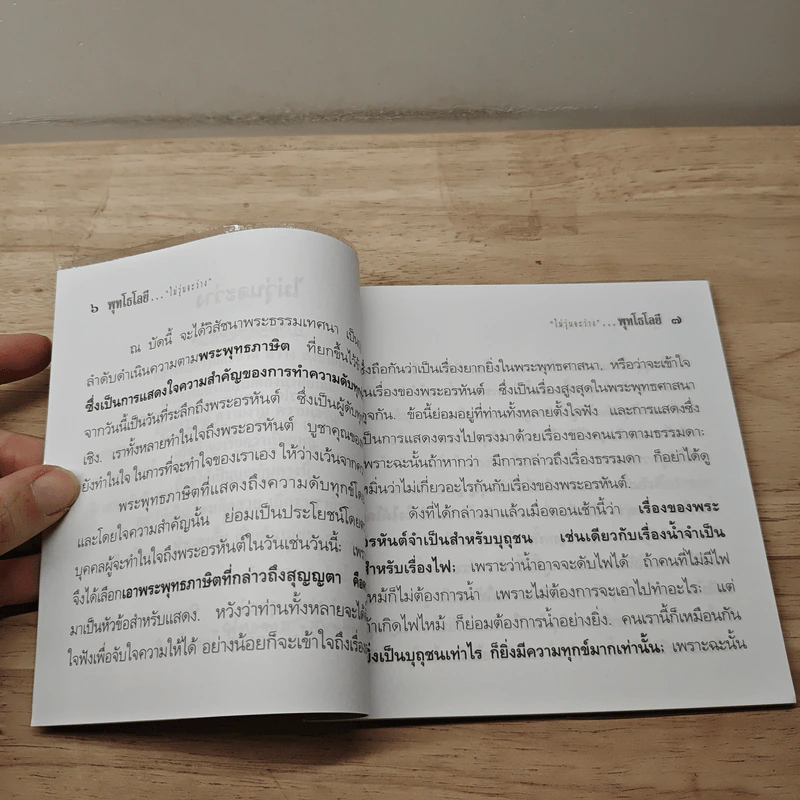 ๖ พุทโธโลยี ... "ไม่วุ่นจะว่าง"
ณ บัดนี้ จะได้วิสัชนาพระธรรมเทศนา
ลำดับดำเนินความตามพระพุทธภาษิต ที่ยกขึ้นไว้
ซึ่งเป็นการแสดงใจความสำคัญของการทำความดับทุกข์
จากวันนี้เป็นวันที่ระลึกถึงพระอรหันต์ ซึ่งเป็นผู้ดับทุกข์
เชิง. เราทั้งหลายทำในใจถึงพระอรหันต์ บูชาคุณของ
ยังทำในใจ ในการที่จะทำใจของเราเอง ให้ว่างเว้นจาก
พระพุทธภาษิตที่แสดงถึงความดับทุกข์
และโดยใจความสำคัญนั้น ย่อมเป็นประโยชน์โดย
บุคคลผู้จะทำในใจถึงพระอรหันต์ในวันเช่นวันนี้;
จึงได้เลือกเอาพระพุทธภาษิตที่กล่าวถึงสุญญตา คือ
มาเป็นหัวข้อสำหรับแสดง. หวังว่าท่านทั้งหลายจะได้
ใจฟังเพื่อจับใจความให้ได้ อย่างน้อยก็จะเข้าใจถึงเรื่อง
"ไม่วุ่นจะว่าง" ... พุทโธโลยี ๗
ซึ่งถือกันว่าเป็นเรื่องยากยิ่งในพระพุทธศาสนา. หรือว่าจะเข้าใจ
ในเรื่องของพระอรหันต์ ซึ่งเป็นเรื่องสูงสุดในพระพุทธศาสนา
ดุจกัน. ข้อนี้ย่อมอยู่ที่ท่านทั้งหลายตั้งใจฟัง และการแสดงซึ่ง
เป็นการแสดงตรงไปตรงมาด้วยเรื่องของคนเราตามธรรมดา;
เพราะฉะนั้นถ้าหากว่า มีการกล่าวถึงเรื่องธรรมดา ก็อย่าได้ดู
หมิ่นว่าไม่เกี่ยวอะไรกันกับเรื่องของพระอรหันต์.
ดังที่ได้กล่าวมาแล้วเมื่อตอนเช้านี้ว่า เรื่องของพระ
อรหันต์จำเป็นสำหรับบุถุชน เช่นเดียวกับเรื่องน้ำจำเป็น
สำหรับเรื่องไฟ; เพราะว่าน้ำอาจจะดับไฟได้ ถ้าคนที่ไม่มีไฟ
ไหม้ก็ไม่ต้องการน้ำ เพราะไม่ต้องการจะเอาไปทำอะไร; แต่
ถ้าเกิดไฟไหม้ ก็ย่อมต้องการน้ำอย่างยิ่ง. คนเรานี้ก็เหมือนกัน
ยิ่งเป็นบุถุชนเท่าไร ก็ยิ่งมีความทุกข์มากเท่านั้น; เพราะฉะนั้น